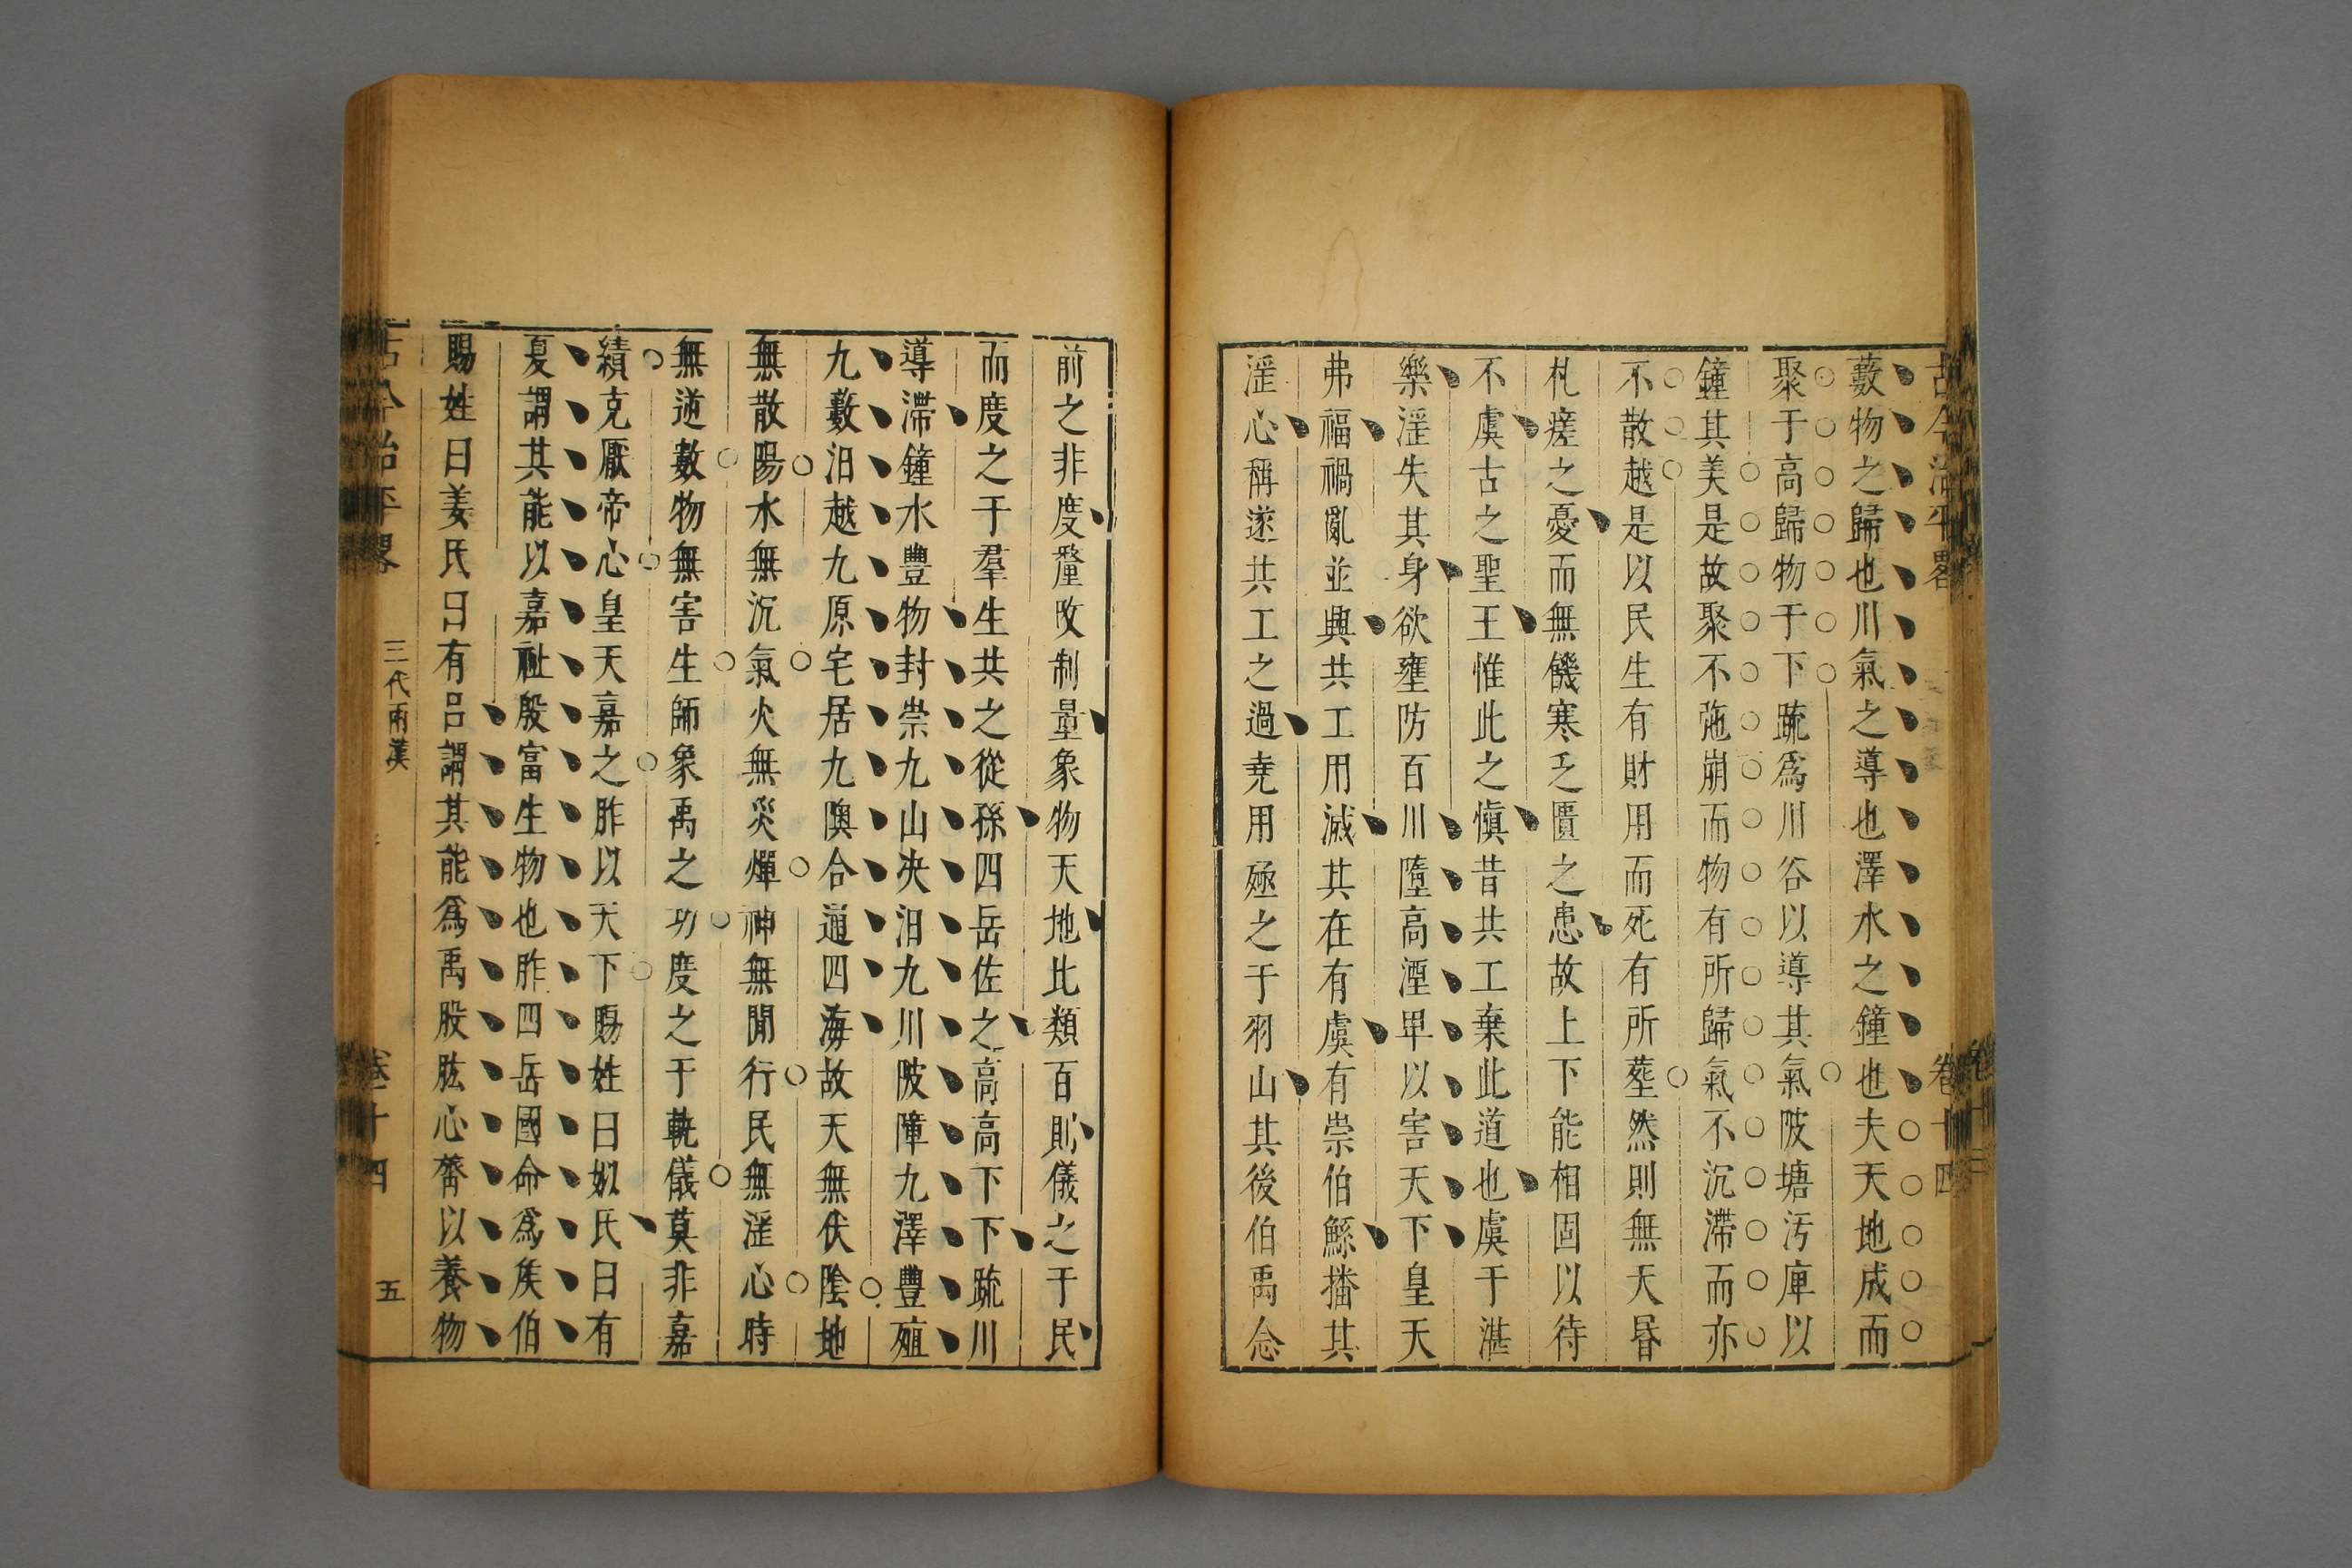 古今治平畧
卷十四
藪物之歸也川氣之導也澤水之鐘也夫天地成而
聚于高歸物于下疏爲川谷以導其氣陂塘汚庳以
鐘其美是故聚不阤崩而物有所歸氣不沉滯而亦
不散越是以民生有財用而死有所塟然則無夭昬
札瘥之憂而無饑寒乏匱之患故上下能相固以待
不虞古之聖王惟此之愼昔共工棄此道也虞于湛
樂淫失其身欲壅防百川墮高湮卑以害天下皇天
弗福禍亂並興共工用滅其在有虞有崇伯鯀播其
淫心稱遂共工之過尭用殛之于羽山其後伯禹念
前之非度釐改制量象物天地比類百則儀之于民
而度之于羣生共之從孫四岳佐之高高下下疏川
導滯鐘水豐物封崇九山决汨九川陂障九澤豐殖
九藪汨越九原宅居九隩合通四海故天無伏陰地
無散陽水無沉氣火無災燀神無閒行民無淫心時
無逆數物無害生師象禹之功度之于軌儀莫非嘉
績克厭帝心皇天嘉之胙以天下賜姓曰姒氏曰有
夏謂其能以嘉祉殷富生物也胙四岳國命爲矦伯
賜姓曰姜氏曰有呂謂其能爲禹股肱心膂以養物
古今治平畧
三代兩漢
卷十四
五